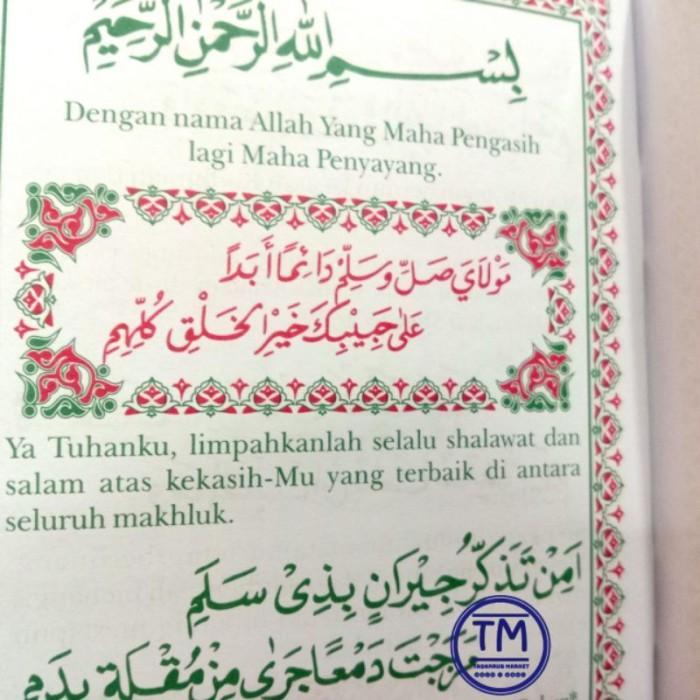 بِسْمِ اللّٰهِ الرَّحْمٰنِ الرَّحِيْمِ
Dengan nama Allah Yang Maha Pengasih
lagi Maha Penyayang.
مَوْلَايَ صَلِّ وَسَلِّمْ دَائِمًا أَبَدًا
عَلٰى حَبِيْبِكَ خَيْرِ الْخَلْقِ كُلِّهِمِ
Ya Tuhanku, limpahkanlah selalu shalawat dan
salam atas kekasih-Mu yang terbaik di antara
seluruh makhluk.
اَمِنْ تَذَكُّرِ جِيْرَانٍ بِذِيْ سَلَمِ
مَزَجْتَ دَمْعًا جَرٰى مِنْ مُقْلَةٍ بِدَمِ
TM